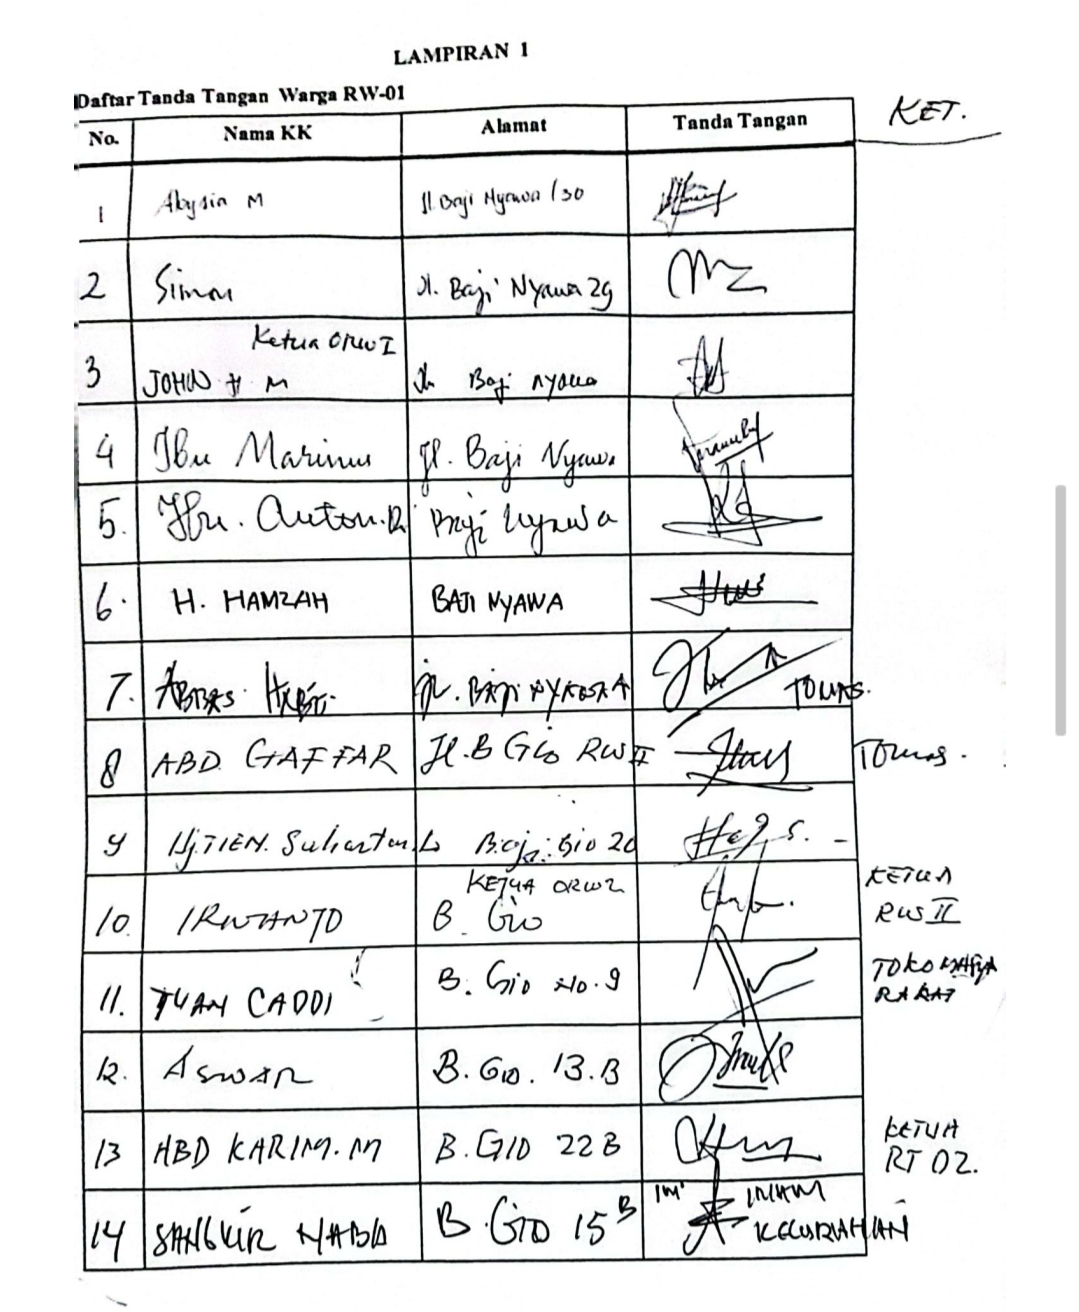 LAMPIRAN 1
Daftar Tanda Tangan Warga RW-01
KET.
No. Nama KK Alamat Tanda Tangan
1 M Jl Baji Nyawa /30
2 Simon Jl. Baji Nyawa 29
Ketua ORW I
3 JOHN H M Jln Baji nyawa
4 Ibu Marinus Jl. Baji Nyawa
5. Ibu. Anton.R Baji Nyawa
6. H. HAMZAH BAJI NYAWA
7. ABBAS Jl. BAJI TOMAS.
8 ABD. GAFFAR Jl. B Gio RW II Tomas.
9 Hj.TIEN. Baji Gio 20
KETUA ORW2 KETUA
10. IRWANTO B. Gio RW II
11. TUAN CADDI B. Gio No. 9 TOKO MASYA
RAKAT
12. ASWAR B. GIO. 13.B
13 ABD KARIM. M B. GIO 22 B KETUA
RT 02.
14 B. GIO 15 B IMAM
KELURAHAN